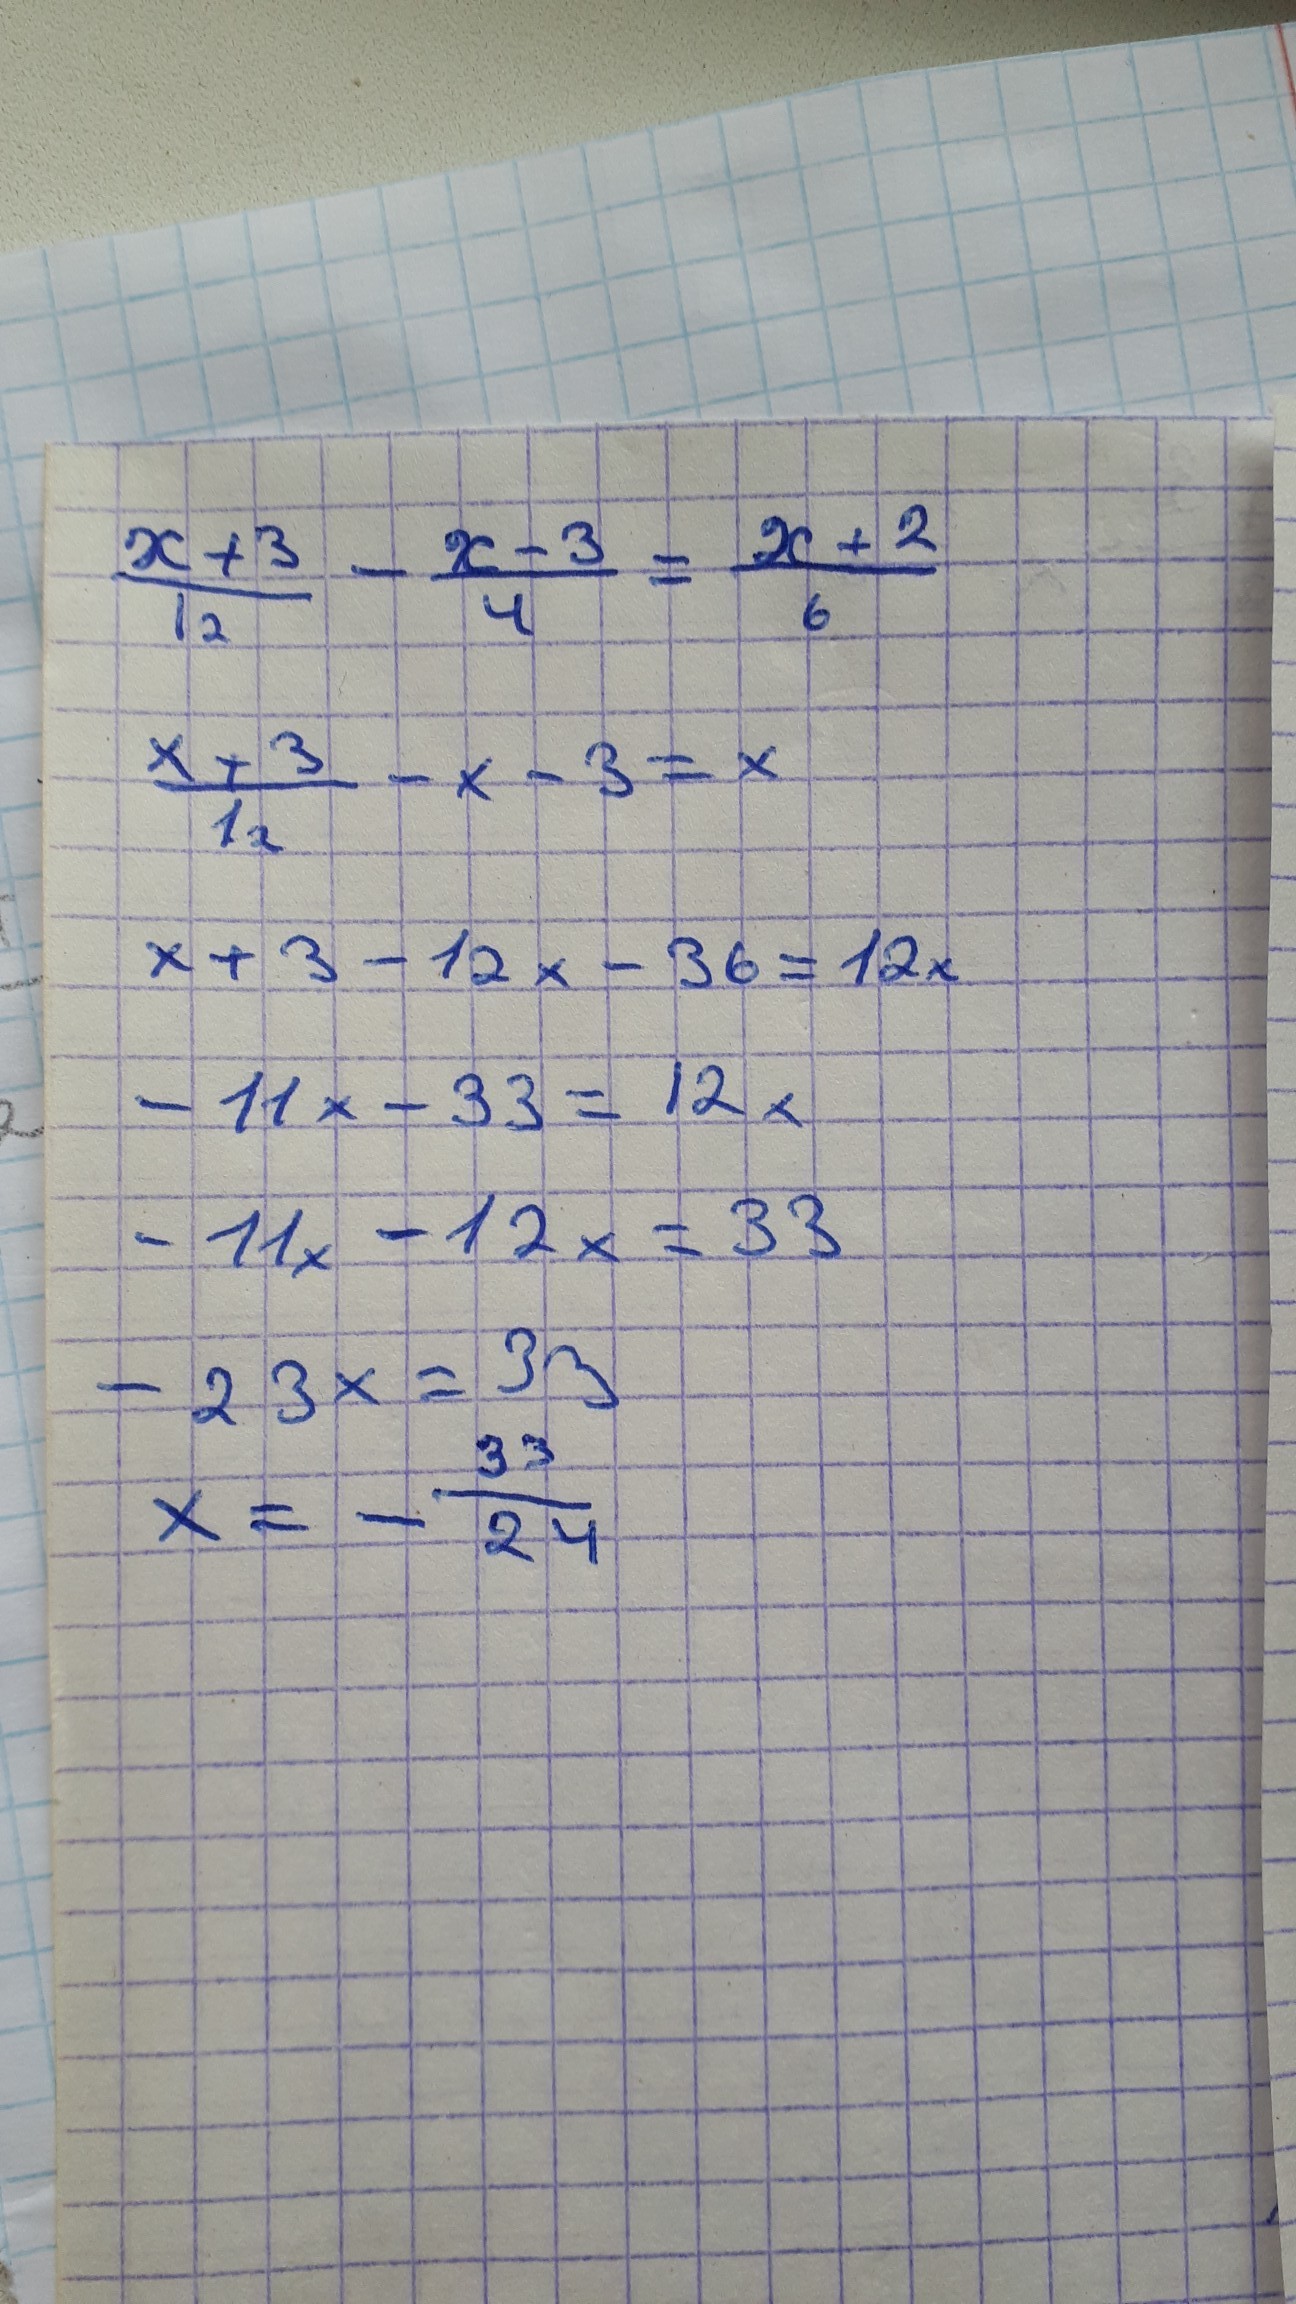 (x+3)/12 - (x-3)/4 = (x+2)/6
(x+3)/12 - x - 3 = x
x + 3 - 12x - 36 = 12x
- 11x - 33 = 12x
- 11x - 12x = 33
- 23x = 33
x = - 33/24